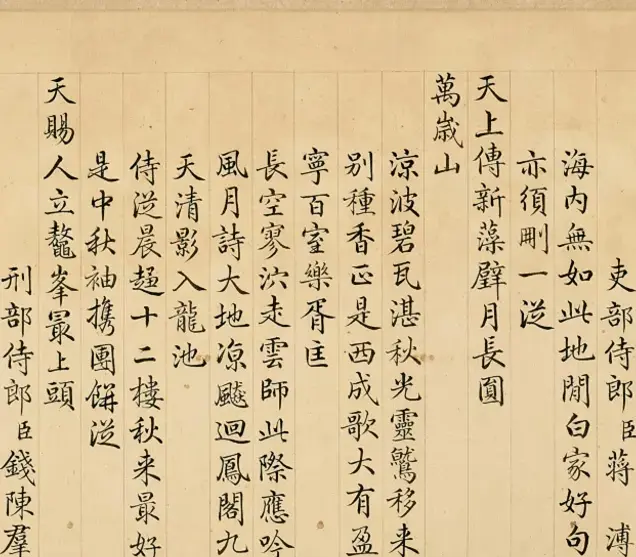 吏部侍郎臣蔣溥
海内無如此地閒白家好句
亦須刪一從
天上傳新藻璧月長圓
萬歲山
涼波碧瓦湛秋光靈鷲移来
别種香正是西成歌大有盈
寧百室樂胥匡
長空寥泬走雲師此際應吟
風月詩大地凉飈迴鳳閣九
天清影入龍池
侍從晨趨十二樓秋来最好
是中秋袖攜團餅從
天賜人立鼇峯最上頭
刑部侍郎臣錢陳羣